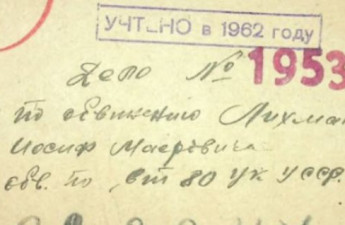 УЧТЕНО в 1962 году
Дело № 1953
по обвинению Лихма
Иосиф Маеровича
обв. по ст 80 УК УССР.